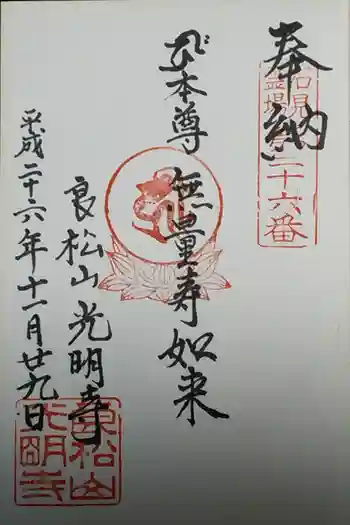 奉納
石見
霊場
二十六番
本尊 無量寿如来
良松山光明寺
平成二十六年十一月廿九日
良松山
光明寺